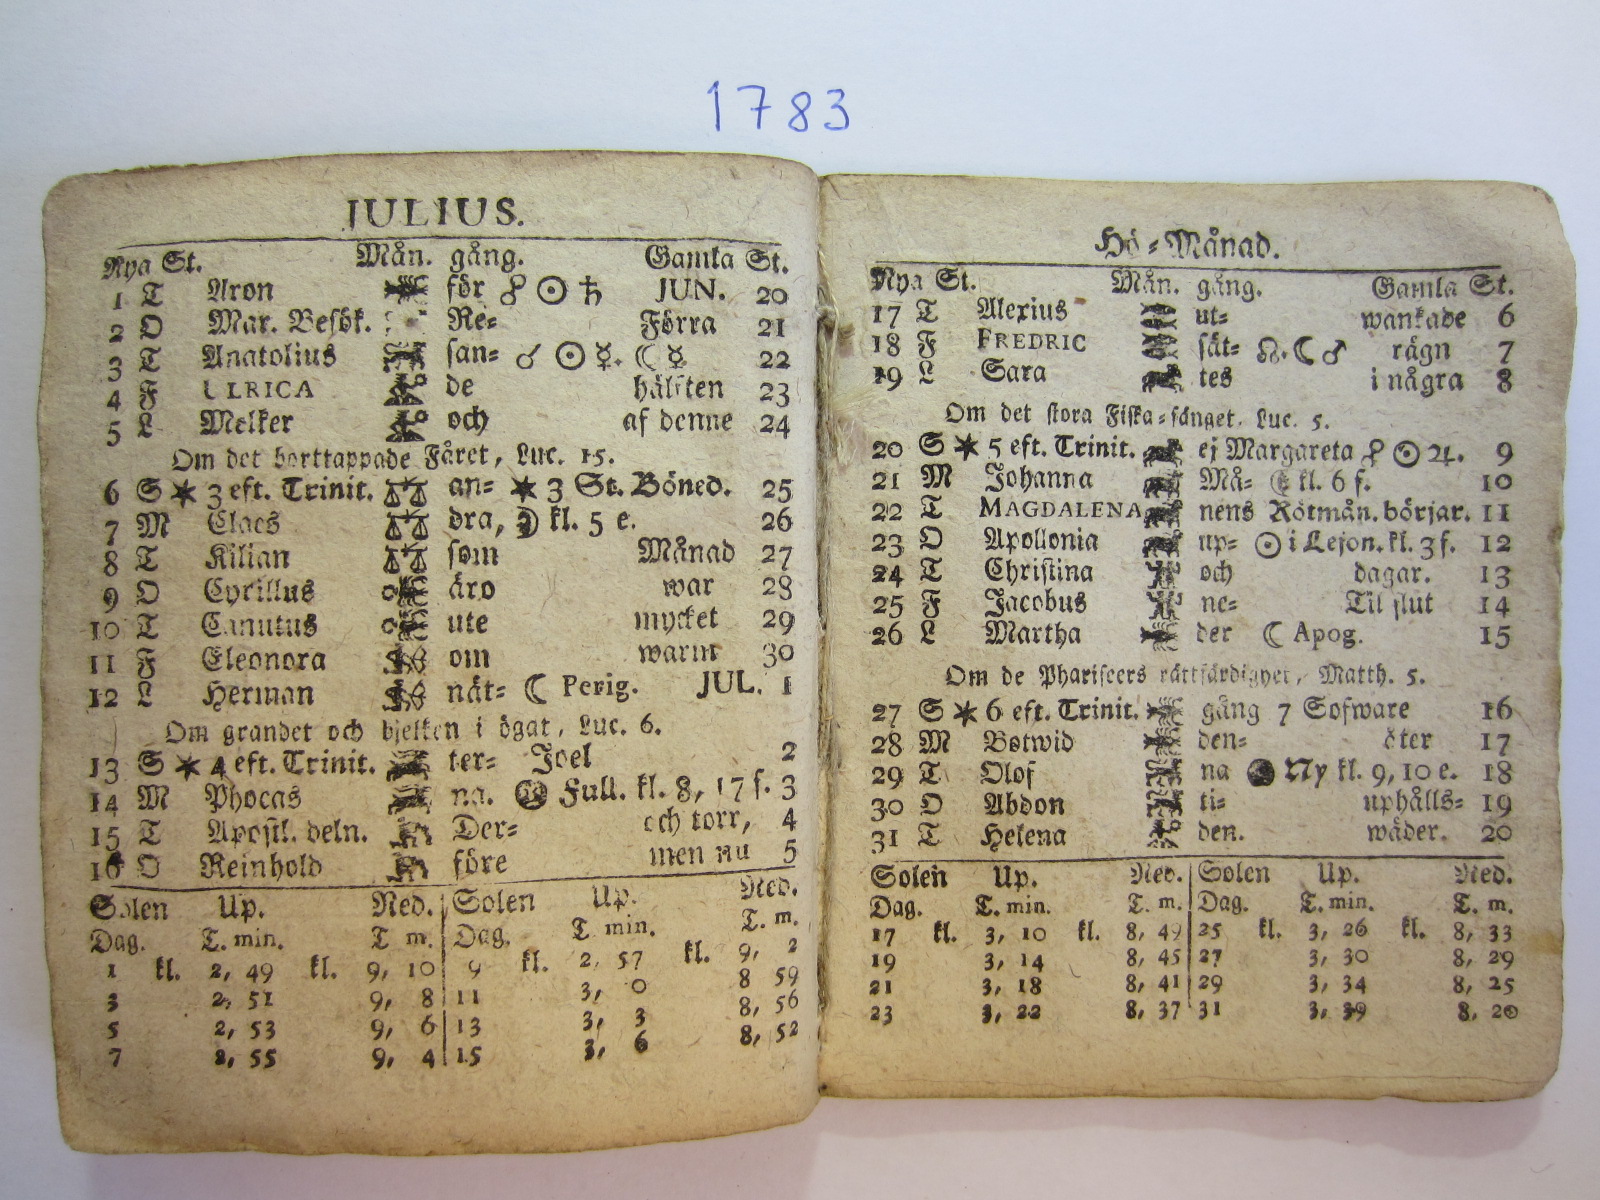 1783
JULIUS.
Nya St. Mån. gång. Gamla St.
1 T Aron för ☍ ☉ ♄ JUN. 20
2 O Mar. Besök. Re- Förra 21
3 T Anatolius san- ☌ ☉ ☿. ☾ ☿ 22
4 F ULRICA de hälften 23
5 L Melker och af denne 24
Om det borttappade Fåret, Luc. 15.
6 S * 3 eft. Trinit. an- * 3 St. Böned. 25
7 M Claes dra, ☽ kl. 5 e. 26
8 T Kilian som Månad 27
9 O Cyrillus äro war 28
10 T Canutus ute mycket 29
11 F Eleonora om warm 30
12 L Herman nät- ☾ Perig. JUL. 1
Om grandet och bjelken i ögat, Luc. 6.
13 S * 4 eft. Trinit. ter- Joel 2
14 M Phocas na. Full. kl. 8, 17 f. 3
15 T Apostl. deln. Der- och torr, 4
16 O Reinhold före men nu 5
Solen Up. Ned. Solen Up. Ned.
Dag. T. min. T m. Dag. T min. T. m.
1 kl. 2, 49 kl. 9, 10 9 kl. 2, 57 kl. 9, 2
3 2, 51 9, 8 11 3, 0 8 59
5 2, 53 9, 6 13 3, 3 8, 56
7 2, 55 9, 4 15 3, 6 8, 52
Hö-Månad.
Nya St. Mån. gång. Gamla St.
17 T Alexius ut- wankade 6
18 F FREDRIC sät- ☊. ☾ ♂ rägn 7
19 L Sara tes i några 8
Om det stora Fiska-fänget. Luc. 5.
20 S * 5 eft. Trinit. ej Margareta ☍ ☉ ♃. 9
21 M Johanna Må- ☾ kl. 6 f. 10
22 T MAGDALENA nens Rötmån. börjar. 11
23 O Apollonia up- ☉ i Lejon. kl. 3 f. 12
24 T Christina och dagar. 13
25 F Jacobus ne- Til slut 14
26 L Martha der ☾ Apog. 15
Om de Phariseers rättfärdighet, Matth. 5.
27 S * 6 eft. Trinit. gång 7 Sofware 16
28 M Botwid den- åter 17
29 T Olof na Ny kl. 9, 10 e. 18
30 O Abdon ti- uphålls- 19
31 T Helena den. wäder. 20
Solen Up. Ned. Solen Up. Ned.
Dag. T. min. T. m. Dag. T. min. T. m.
17 kl. 3, 10 kl. 8, 49 25 kl. 3, 26 kl. 8, 33
19 3, 14 8, 45 27 3, 30 8, 29
21 3, 18 8, 41 29 3, 34 8, 25
23 3, 22 8, 37 31 3, 39 8, 20